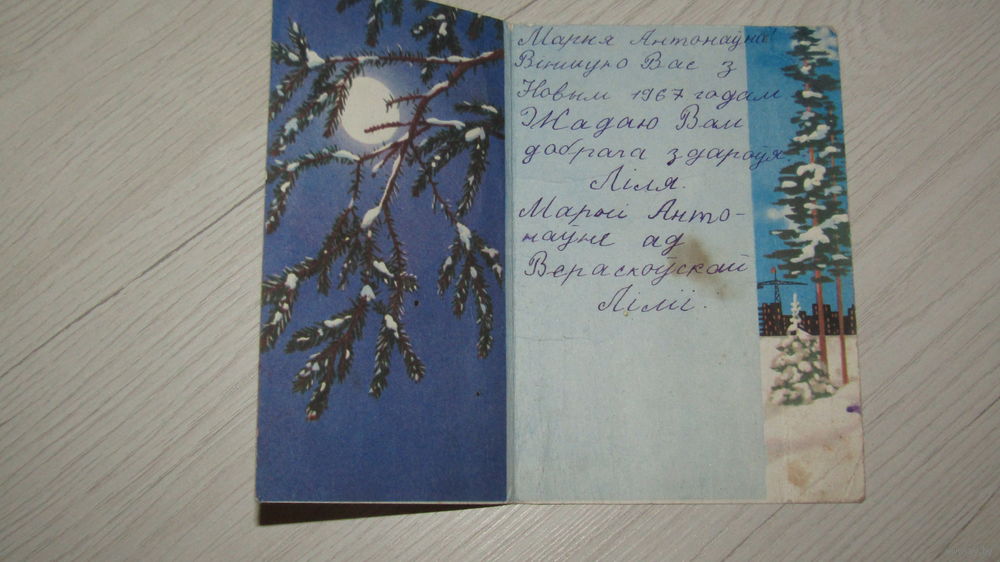 Марыя Антонаўна!
Віншую Вас з
Новым 1967 годам.
Жадаю Вам
добрага здароўя
Ліля.
Марыі Анто-
наўне ад
Вераскоўскай
Ліліі.